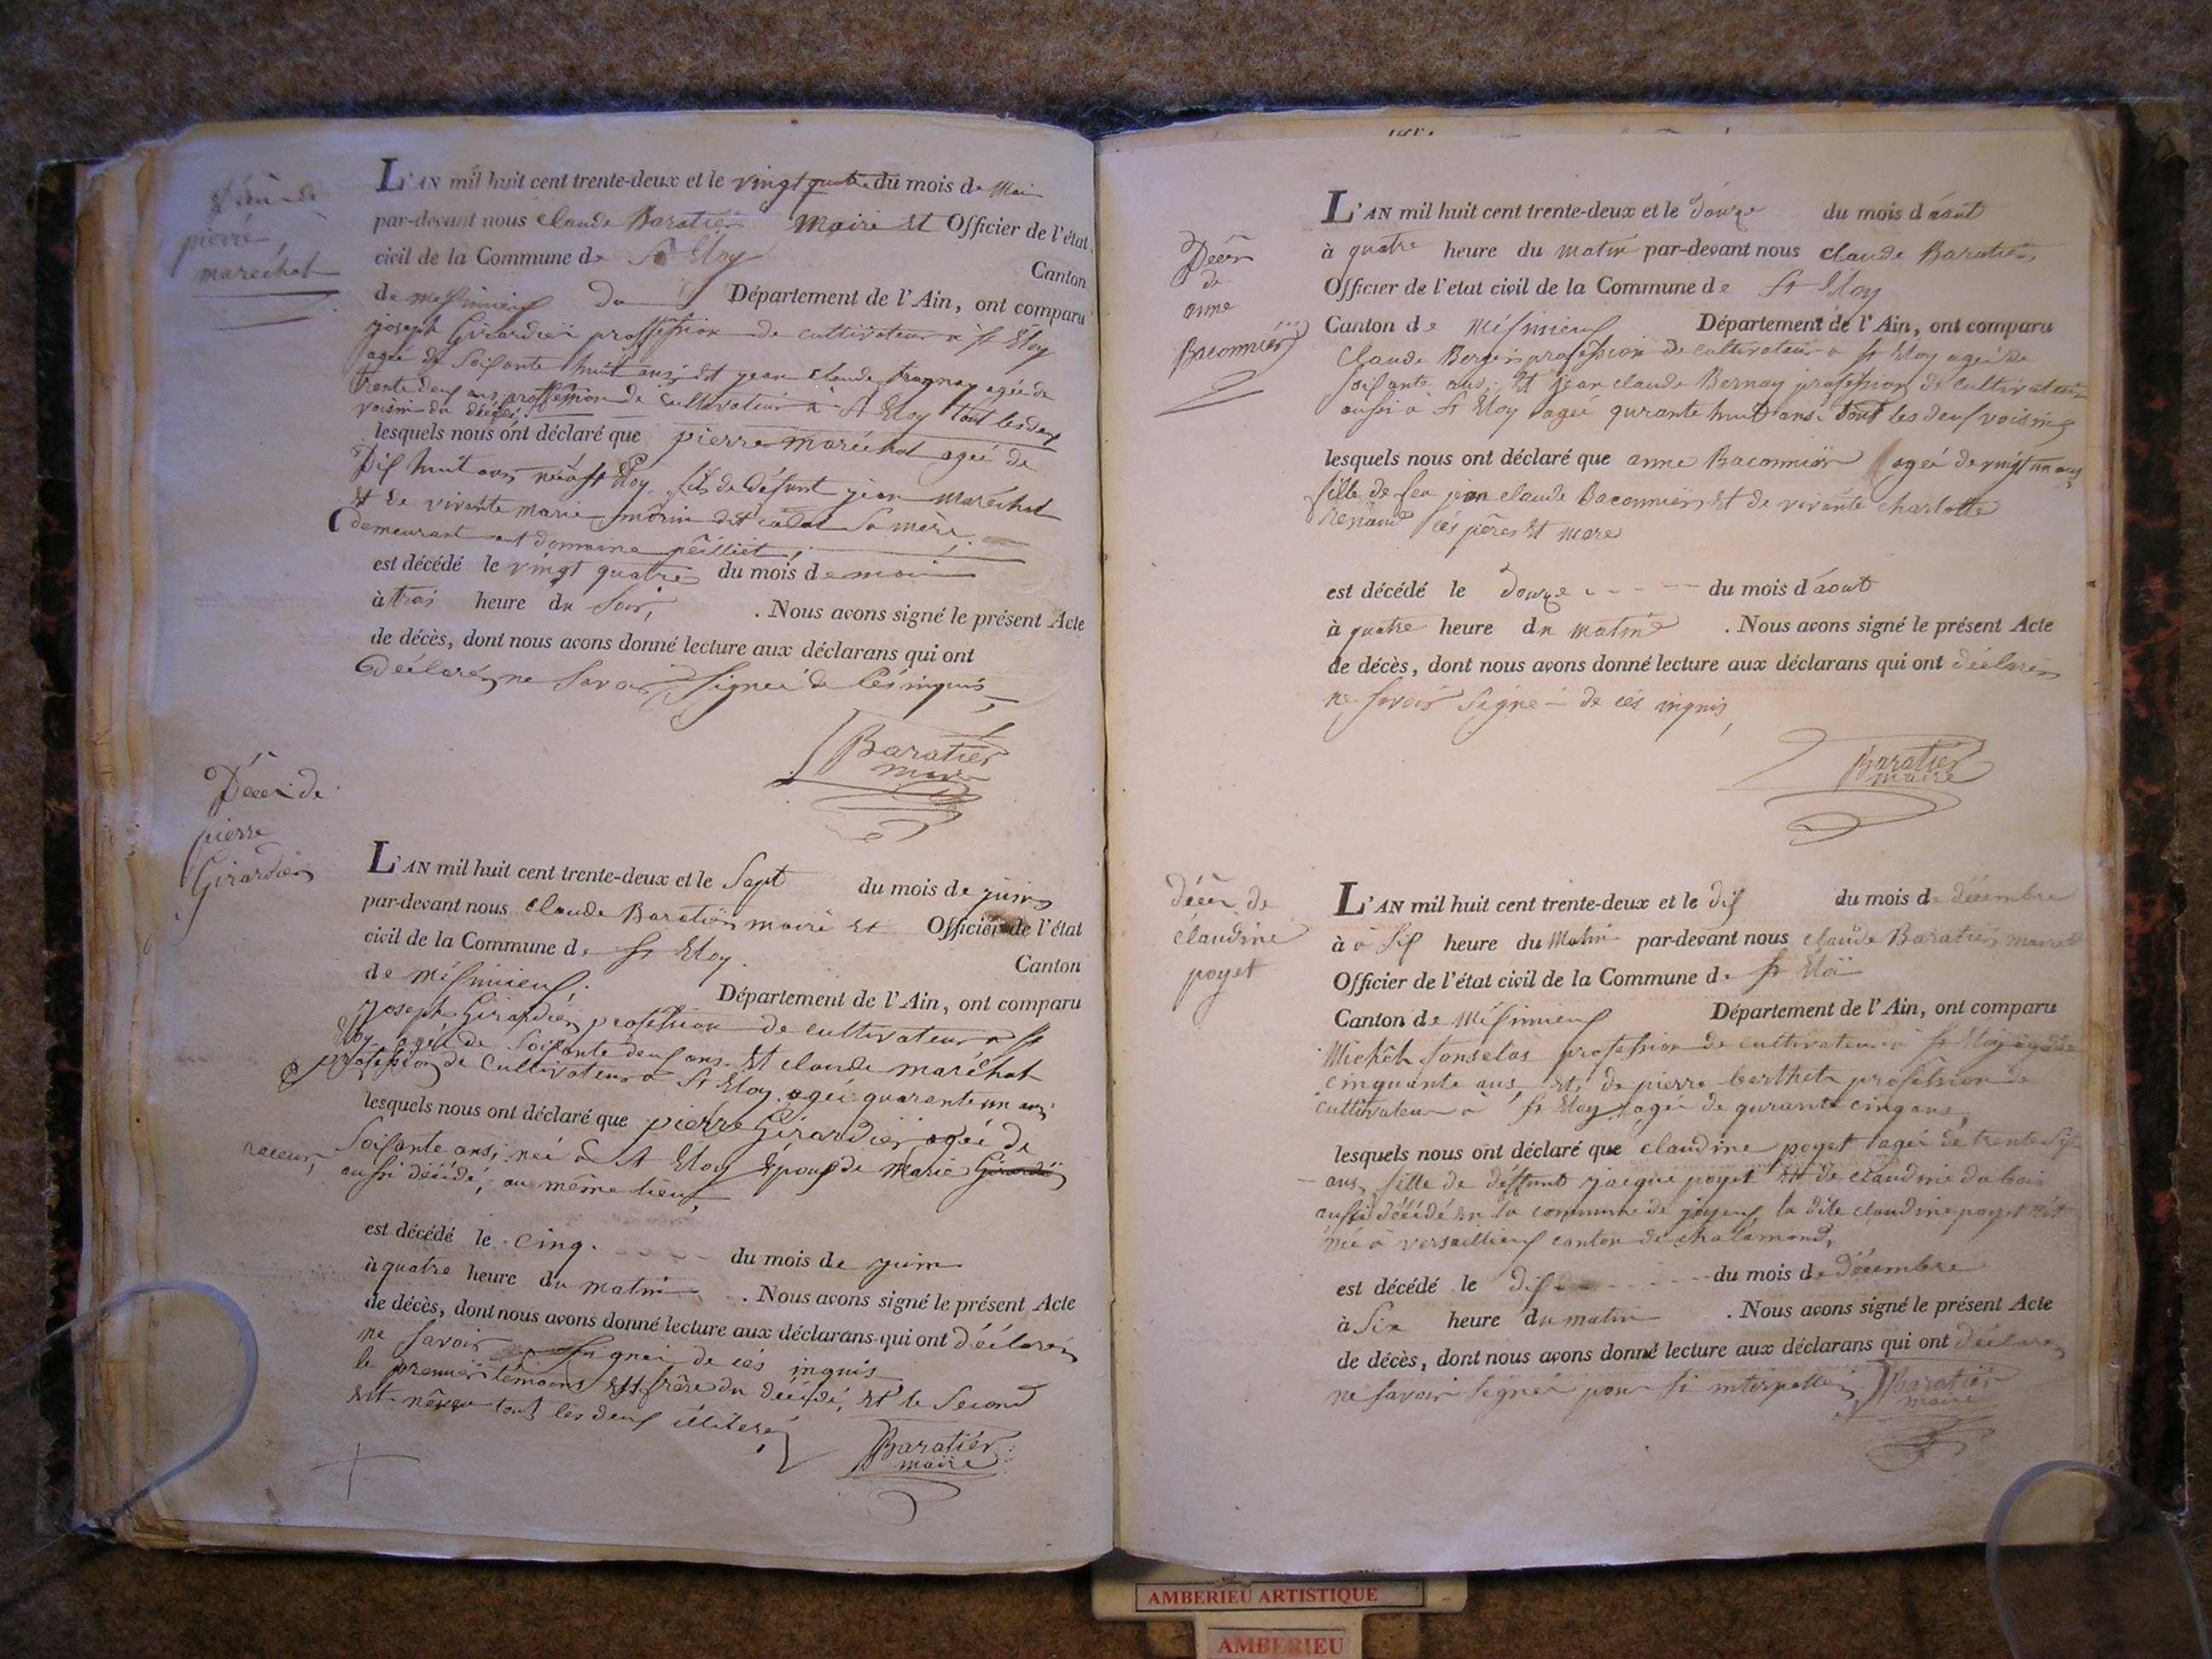 Décès de
pierre
maréchal
L'AN mil huit cent trente-deux et le vingt quatre du mois de Mai
par-devant nous Claude Baratier Maire et Officier de l'état
civil de la Commune de St Eloy Canton
de mesimieux Département de l'Ain, ont comparu
joseph Girardier proffession de cultivateur a St Eloy
agée de Soisante huit ans, et jean claude agée de
trente deux ans, proffession de cultivateur à St Eloy tout les deux
voisin du décédé
lesquels nous ont déclaré que pierre maréchal ageé de
Dix huit ans neé a St Eloy, fils de défunt jean maréchal
et de vivante marie morin sa mère,
demeurant domaine peilliet,
est décédé le vingt quatre du mois de mai
à trois heure du Soir, . Nous avons signé le présent Acte
de décès, dont nous avons donné lecture aux déclarans qui ont
déclarés ne Savoir Signeé de cés inquis
Baratier
maire
Décès de
pierre
Girardier
L'AN mil huit cent trente-deux et le Sept du mois de juin
par-devant nous claude Baratier maire et Officier de l'état
civil de la Commune de St Eloy Canton
de mésimieux, Département de l'Ain, ont comparu
joseph Girardier profession de cultivateur a St
Eloy agée de Soisante deux ans et claude maréchal
profession de cultivateur a St Eloy ageé quarente un ans
lesquels nous ont déclaré que pierre Girardier ageé de
Soisante ans, neé a St Eloy Epoux de marie Girardier
aussi décédé, au même lieux
est décédé le cinq du mois de juin
à quatre heure du matin . Nous avons signé le présent Acte
de décès, dont nous avons donné lecture aux déclarans qui ont déclarés
ne Savoir Signeé de cés inquis
le premier temoins est frére du décédé, et le Second
est neveu tout les deux illiteré
Baratier
maire
Décès
de
anne
Baconnier
L'AN mil huit cent trente-deux et le douze du mois d'août
à quatre heure du matin par-devant nous claude Baratier
Officier de l'etat civil de la Commune de St Eloy
Canton de Mésimieux Département de l'Ain, ont comparu
Claude Berger profession de cultivateur a St Eloy ageé de
Soisante ans, et jean claude Bernay profession de cultivateur
aussi à St Eloy ageé qurante huit ans. tout les deux voisins
lesquels nous ont déclaré que anne Baconnier ageé de vingt un ans
fille de feu jean claude Baconnier et de vivante charlotte
renaud cés péres et mere
est décédé le douze du mois d'aout
à quatre heure du matine . Nous avons signé le présent Acte
de décès, dont nous avons donné lecture aux déclarans qui ont déclarés
ne Savoir Signé de cés inquis
Baratier
maire
Décès de
claudine
poyet
L'AN mil huit cent trente-deux et le dix du mois de décembre
à a Six heure du Matin par-devant nous claude Baratier maire et
Officier de l'état civil de la Commune de St Eloi
Canton de Mésimieux Département de l'Ain, ont comparu
Michel profession de cultivateur a St Eloy agé de
cinquante ans et de pierre berthet profession de
cultivateur a St Eloy ageé de qurante cinq ans
lesquels nous ont déclaré que claudine poyet ageé de trente Six
ans, fille de deffunt jacque poyet et de claudine dubois
aussi décédé en la commune de joyeux la dite claudine poyet est
neé a versaillieux canton de chalamond,
est décédé le dix du mois de décembre
à Six heure du matin . Nous avons signé le présent Acte
de décès, dont nous avons donné lecture aux déclarans qui ont déclarés
ne savoir Signer pour si interpellés
Baratier
maire
AMBERIEU ARTISTIQUE
AMBERIEU